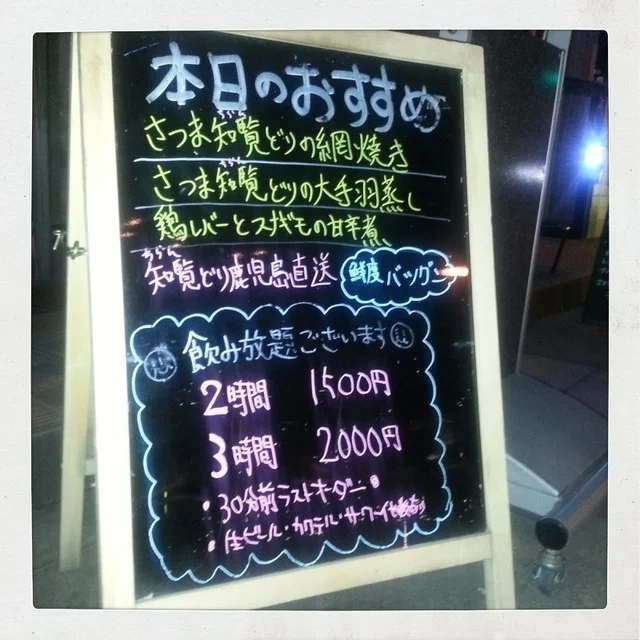 本日のおすすめ
さつま知覧どりの網焼き
さつま知覧どりの大手羽蒸し
鶏レバーとスナギモの甘辛煮
ちらん
知覧どり鹿児島直送
鮮度バツグン
飲み放題ございます
2時間 1500円
3時間 2000円
・30分前ラストオーダー
・生ビール・カクテル・サワー